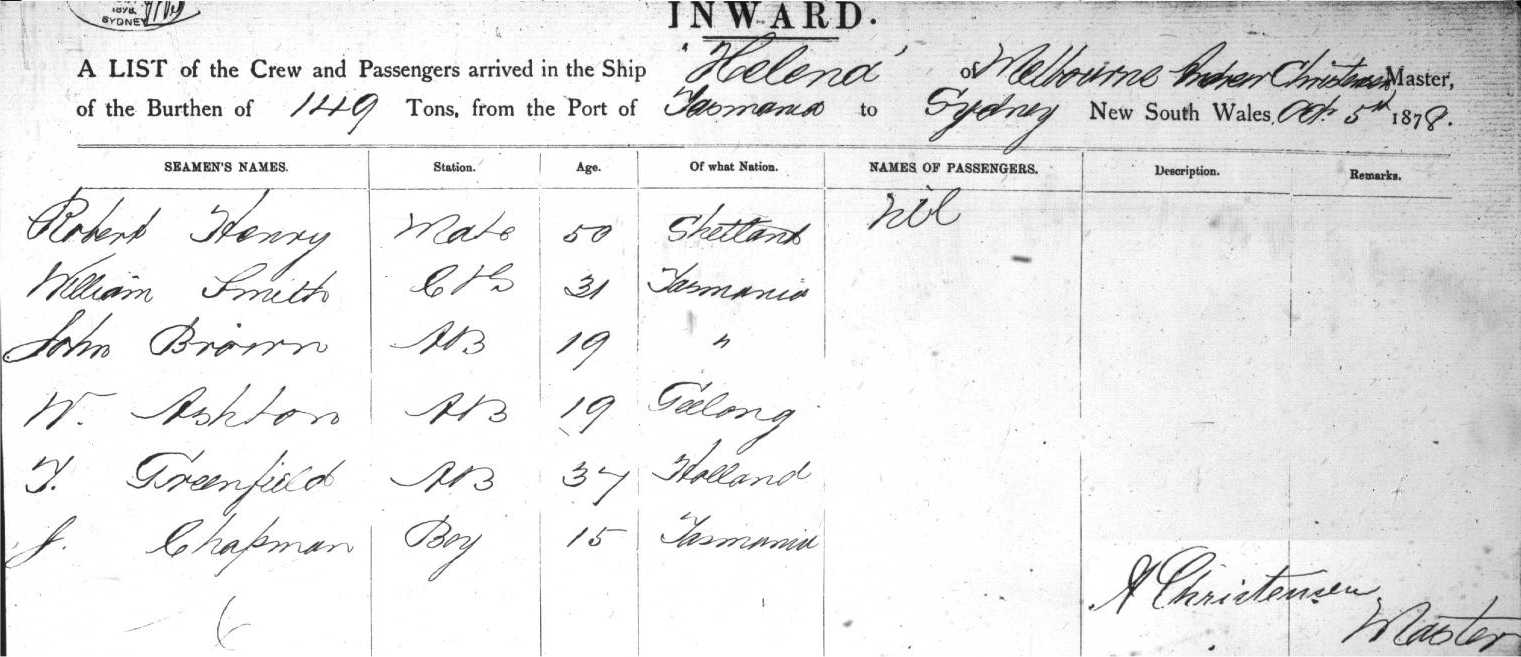 1878
SYDNEY
INWARD.
A LIST of the Crew and Passengers arrived in the Ship 'Helena' of Melbourne Andrew Christensen Master,
of the Burthen of 149 Tons, from the Port of Tasmania to Sydney New South Wales, Oct. 5th 1878.
SEAMEN'S NAMES. Station. Age. Of what Nation. NAMES OF PASSENGERS. Description. Remarks.
Robert Henry Mate 50 Shetland Nil
William Smith 31 Tasmania
John Brown AB 19 "
W. Ashton AB 19 Geelong
Greenfield AB 37 Holland
J. Chapman Boy 15 Tasmania
A Christensen
Master